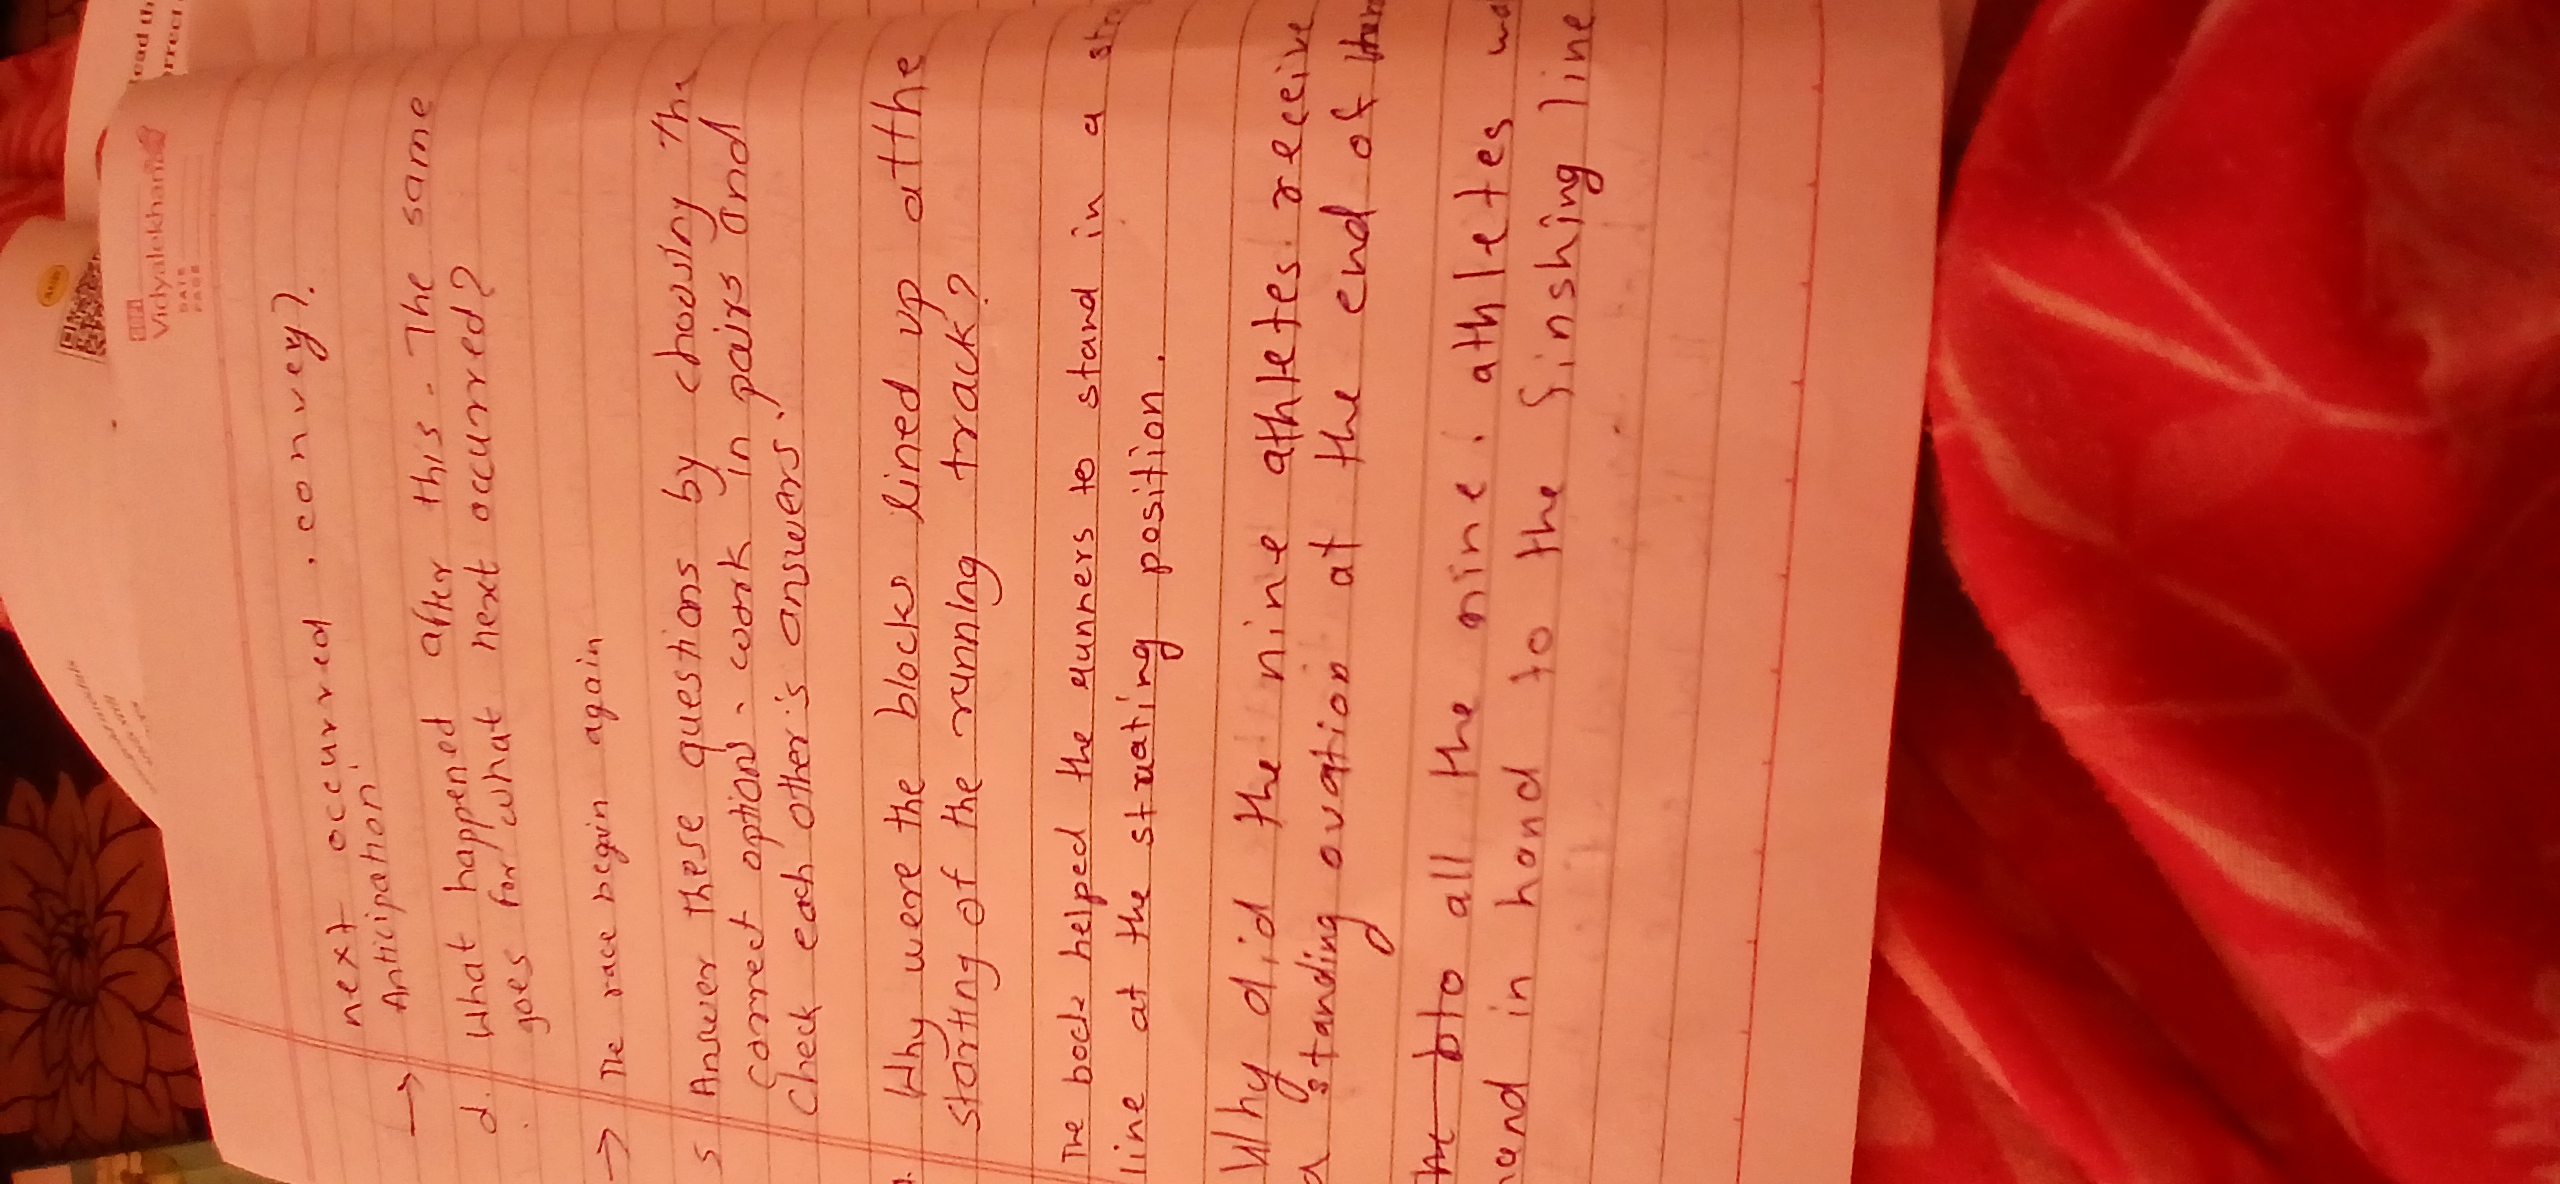 ead th
rrect
Vidyalekhan
DATE
PAGE
next occurred . convey?.
→ Anticipation
d. What happened after this. The same
goes for what next occurred?
→ The race begin again
5 Answer these questions by choosing the
correct option. work in pairs and
check each other's answers.
Why were the blocks lined up atthe
starting of the running track?
The bock helped the runners to stand in a
line at the stracting position.
Why did the nine athletes receive
a standing ovation at the end of
to all the nine athletes
hand in hand to the finshing line